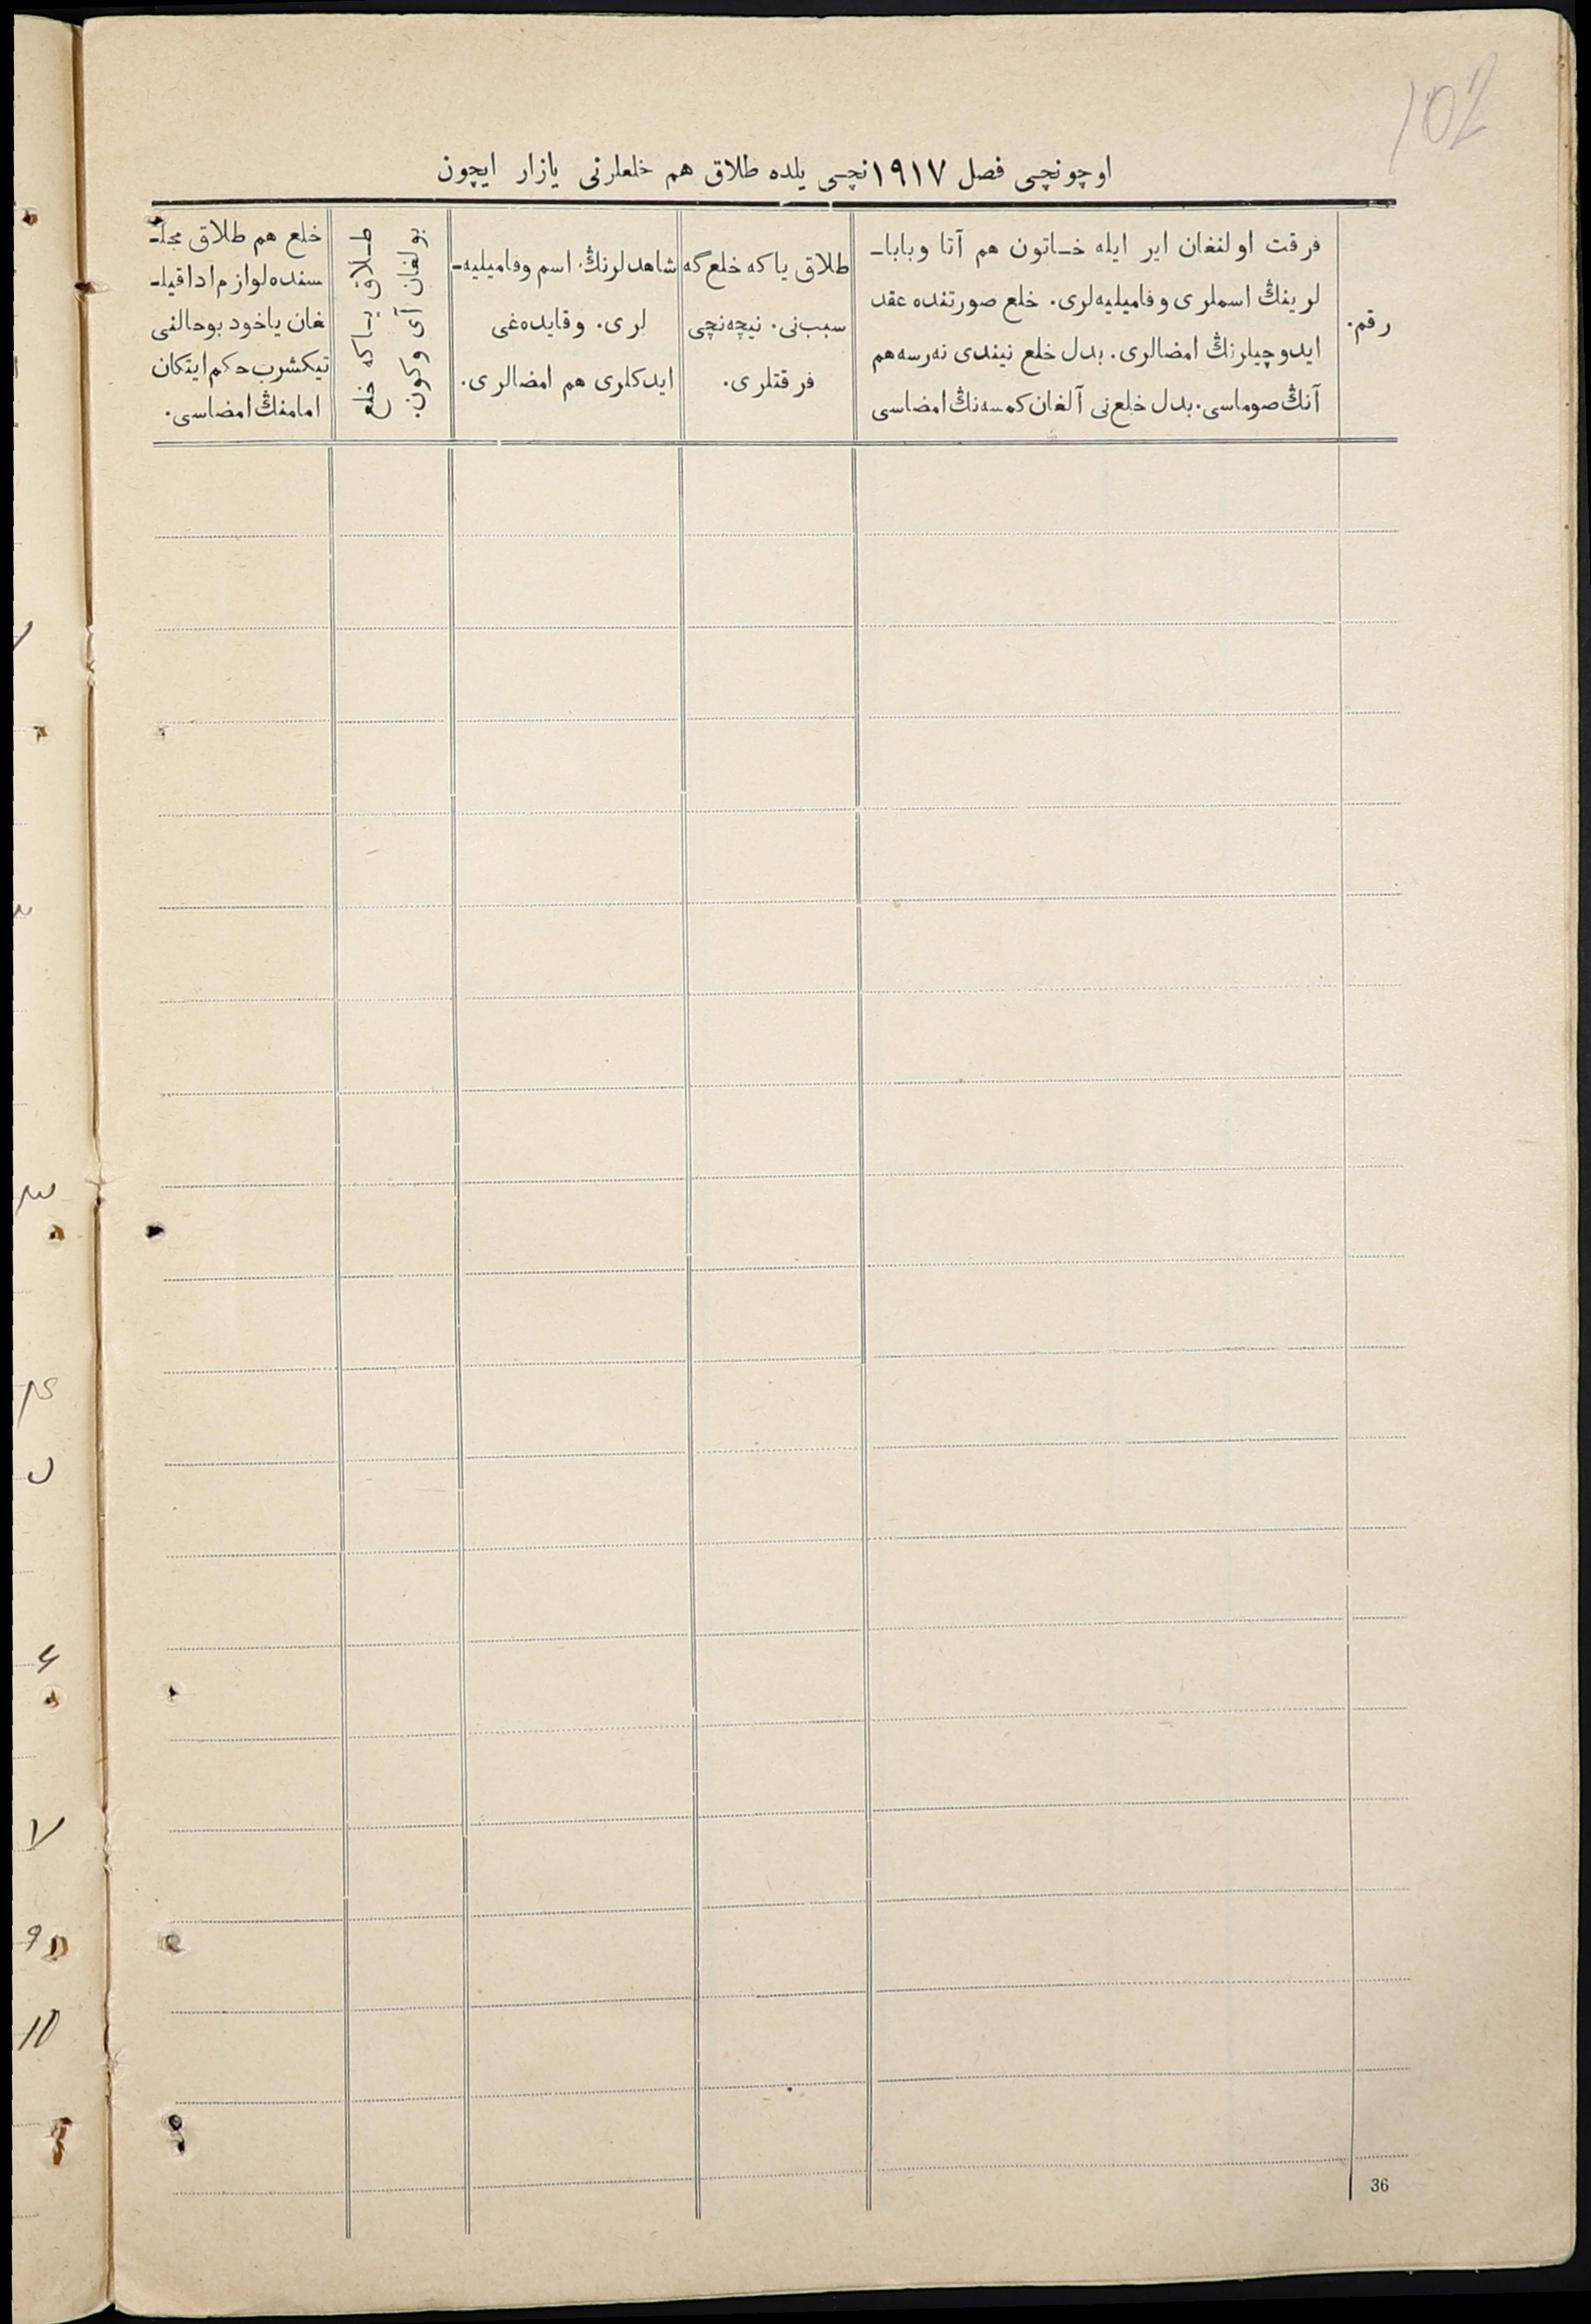 102
اوچونچی فصل ١٩١٧نچی یلده طلاق هم خلعلرنی یازار ایچون
رقم.
فرقت اولنغان ایر ایله خـاتون هم آتا وبابا‌ـ
لرینڭ اسملری وفامیلیه‌لری. خلع صورتنده عقد
ایدوچیلرنڭ امضالری. بدل خلع نیندی نه‌رسه‌هم
آنڭ صوماسی. بدل خلع‌نی آلغان کمسه‌نڭ امضاسی
طلاق یاکه خلع‌گه
سبب‌نی. نیچه‌نچی
فرقتلری.
شاهدلرنڭ اسم وفامیلیه‌ـ
لری. وقایده‌غی
ایدکلری هم امضالری.
طـلاق یـاکه خلع
بولغان آی وکون.
خلع هم طلاق مجلـ
سنده‌لوازم‌اداقیلـ
غان یاخود بوحالنی
تیکشرب‌حکم‌ایتکان
امامنڭ امضاسی.
٧
٩
١٥
36